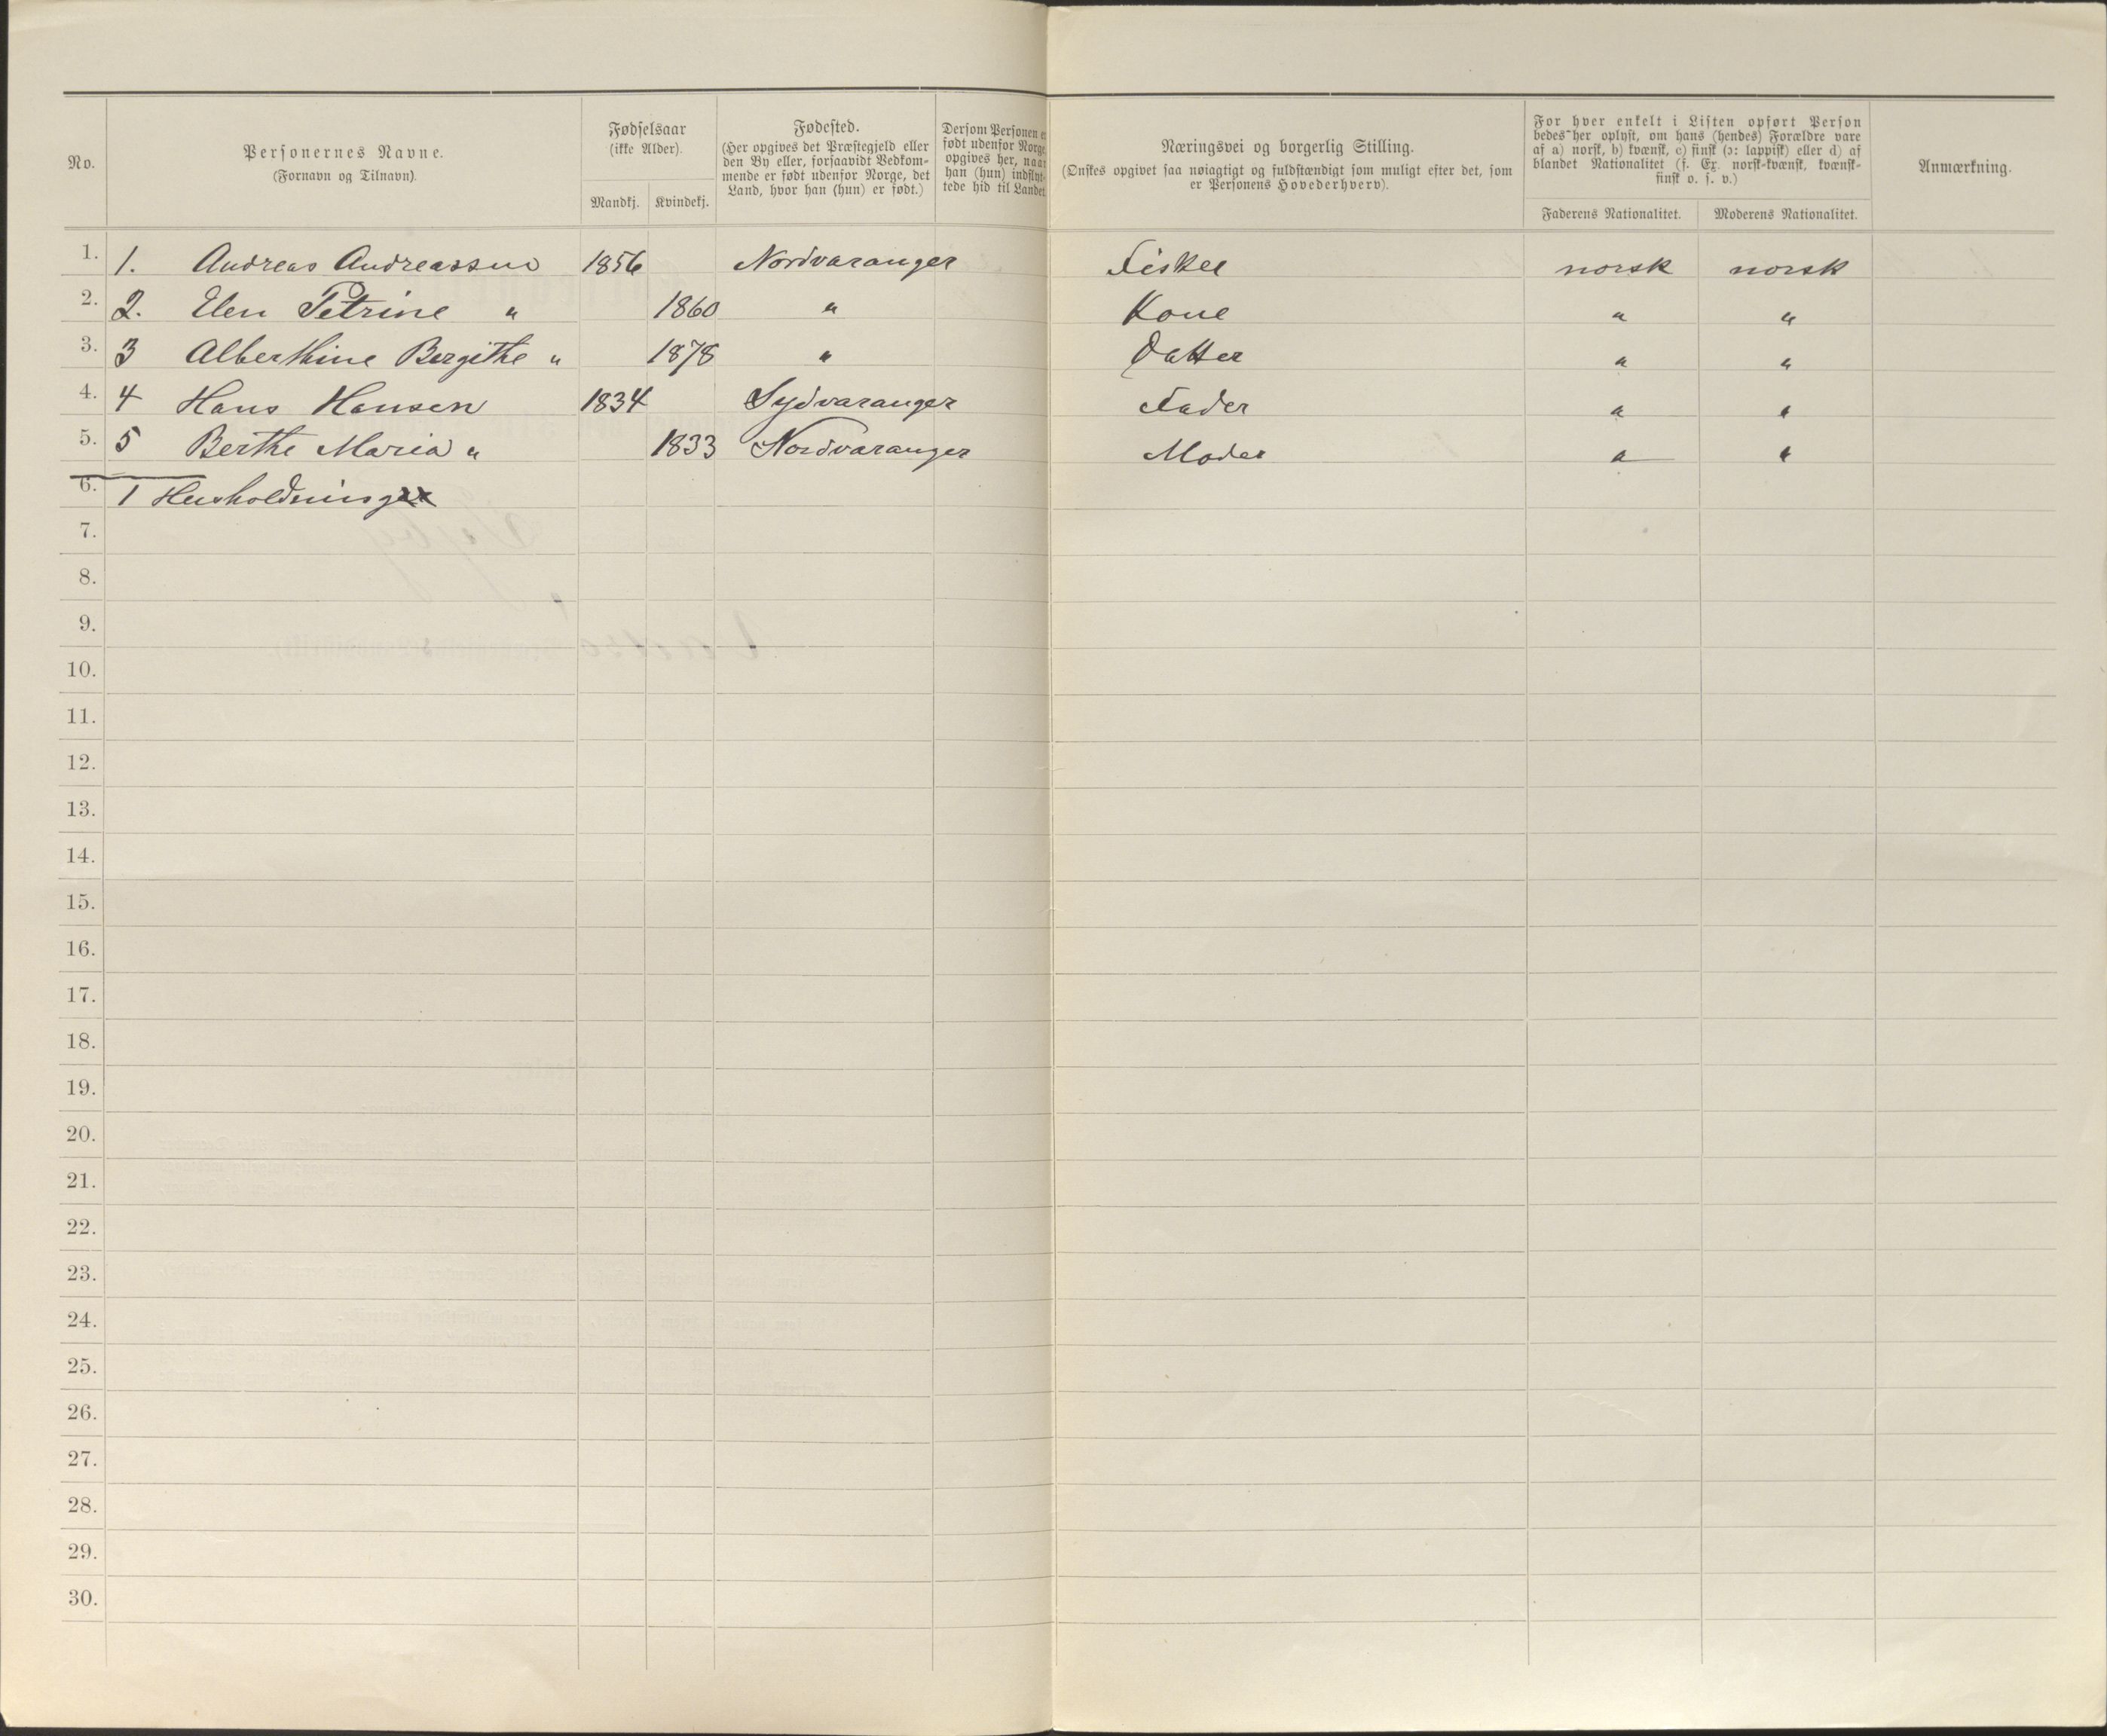 No.
Personernes Navne.
(Fornavn og Tilnavn).
Fødselsaar
(ikke Alder).
Mandkj. Kvindekj.
Fødested.
(Her opgives det Præstegjeld eller
den By eller, forsaavidt Vedkom-
mende er født udenfor Norge, det
Land, hvor han (hun) er født.)
Dersom Personen e
født udenfor Norge
opgives her, naar
han (hun) indflyt-
tede hid til Landet
Næringsvei og borgerlig Stilling.
(Ønskes opgivet saa nøiagtigt og fuldstændigt som muligt efter det, som
er Personens Hovederhverv).
For hver enkelt i Listen opført Person
bedes her oplyst, om hans (hendes) Forældre vare
af a) norsk, b) kvænsk, c) finsk (ɔ: lappisk) eller d) af
blandet Nationalitet (f. Ex. norsk-kvænsk, kvænsk-
finsk o. s. v.)
Faderens Nationalitet. Moderens Nationalitet.
Anmærkning.
1. 1. Andreas Andreassen 1856 Nordvaranger Fisker norsk norsk
2. 2. Elen Petrine " 1860 " Kone " "
3. 3 Alberthine Bergithe " 1878 " Datter " "
4. 4 Hans Hansen 1834 Sydvaranger Fader " "
5. 5 Berthe Maria " 1833 Nordvaranger Moder " "
6. 1 Husholdninger
7.
8.
9.
10.
11.
12.
13.
14.
15.
16.
17.
18.
19.
20.
21.
22.
23.
24.
25.
26.
27.
28.
29.
30.